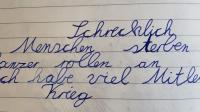 Schrecklich
Menschen sterben
anzer rollen an
ch habe viel Mitle
Krieg